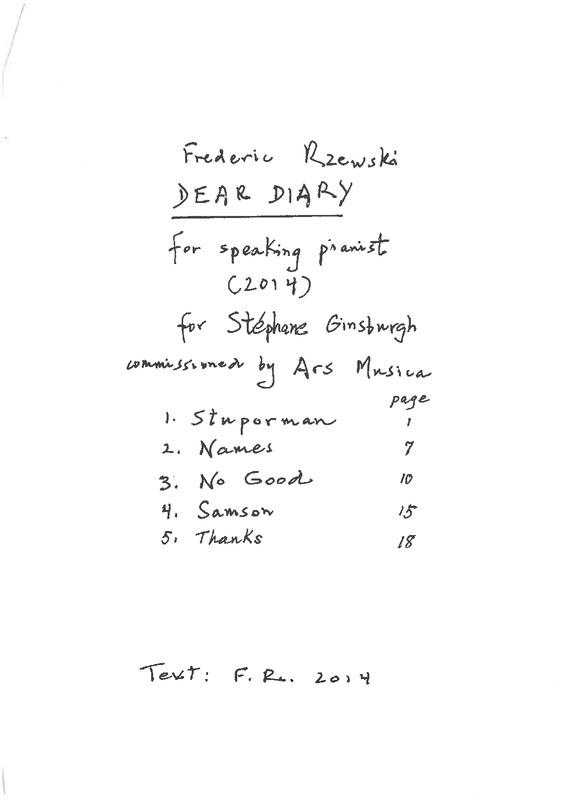 Frederic Rzewski
DEAR DIARY
for speaking pianist
(2014)
for Stéphane Ginsburgh
commissioned by Ars Musica
page
1. Stuporman 1
2. Names 7
3. No Good 10
4. Samson 15
5. Thanks 18
Text: F. R. 2014